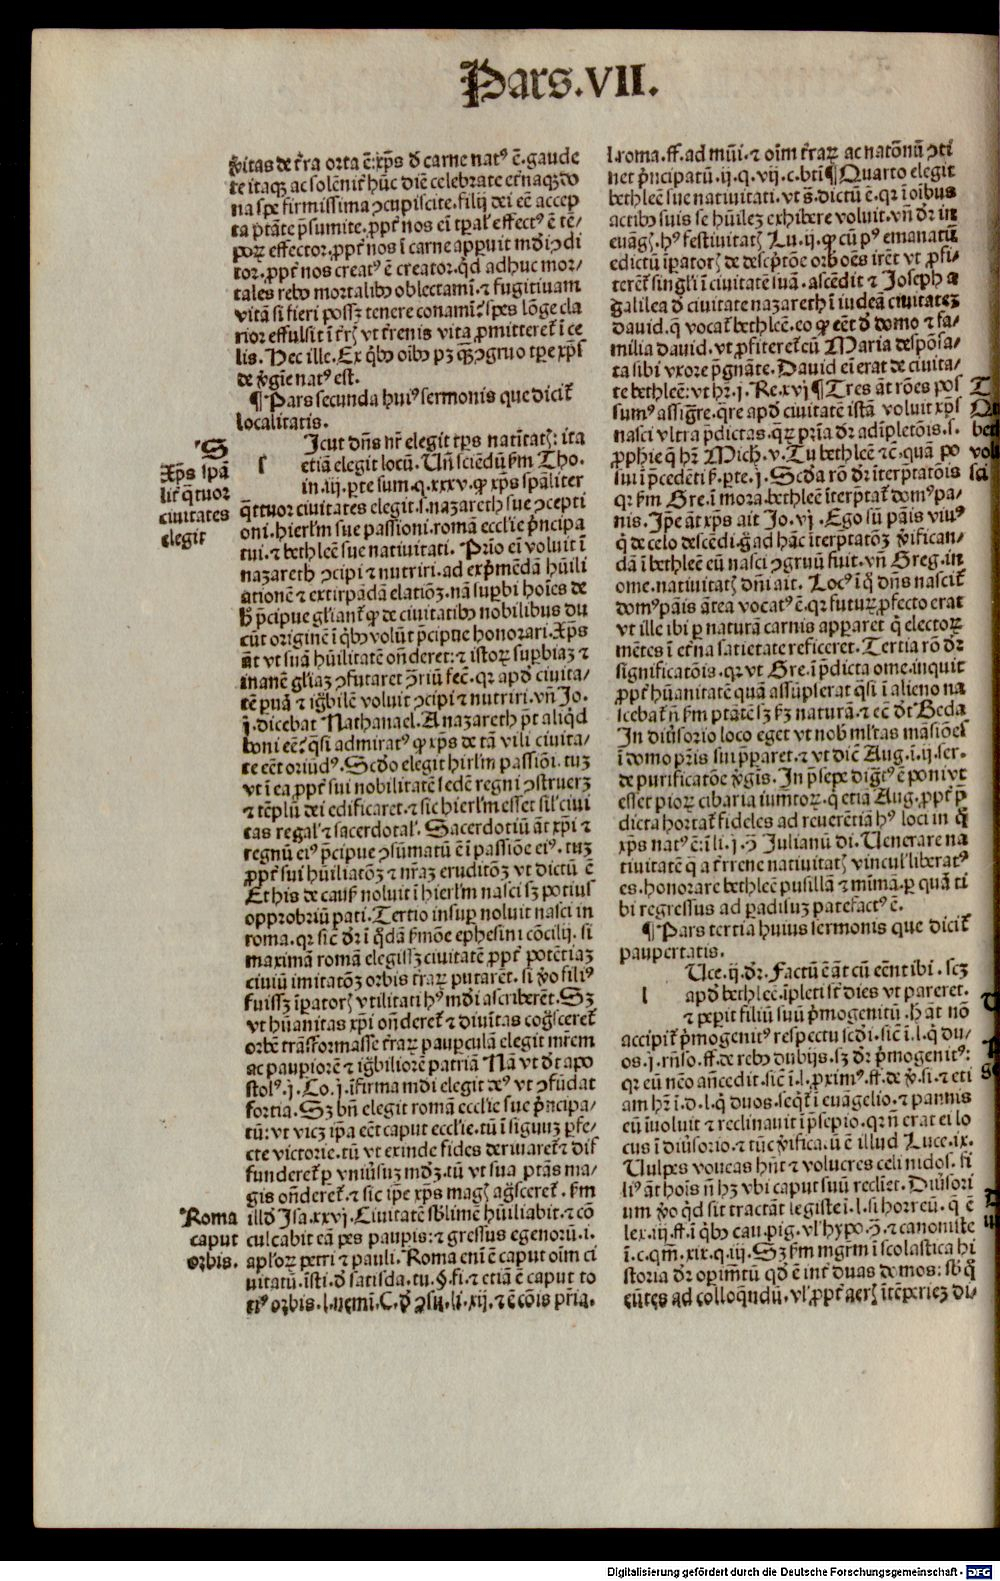 Pars.VII.
v̾itas de t̾ra orta ē: xp̄s d̾ carne natꝰ ē. gaude
te itaqꝫ ac solēnit̾ hūc diē celebrate et̾naqꝫ do
na spe firmissima ꝯcupiscite. filij dei eē accep
ta p̄tāte p̄sumite. ꝓpt̾ nos eī tp̄al̾ effectꝰ ē tē⸗
poꝝ effector. ꝓpt̾ nos ī carne apparuit mūdi ꝯdi
tor. ꝓpt̾ nos creatꝰ ē creator. qd̾ adhuc mor⸗
tales rebꝰ mortalibꝰ oblectamī. ⁊ fugitiuam
vitā si fieri possꝫ tenere conamī: spes lōge cla
rior effulsit ī t̾ris vt t̾renis vita ꝓmitteret̾ ī ce
lis. Hec ille. Ex qͥbꝰ oībꝰ pꝫ qꝫ ꝯgruo tp̄e xp̄s
de v̾gīe natꝰ est.
¶ Pars secunda huiꝰ sermonis que dicit̾
localitatis.
s Icut dn̄s nr̄ elegit tp̄s natītatꝭ: ita
etiā elegit locū. Vn̄ sciēdū ẜm Tho.
in .iij. ꝑte sum. q. xxxv. ꝙ xp̄s spāliter
qͣttuor ciuitates elegit. s. nazareth sue ꝯcepti
oni. hierl̄m sue passioni. romā eccl̄ie pͥncipa
tui. ⁊ bethleē sue natiuitati. Prīo eī voluit ī
nazareth ꝯcipi ⁊ nutriri. ad exp̄mēdā hūili
ationē ⁊ extirpādā elatiōꝫ. nā supbi hoīes de
h̾ p̄cipue gl̄iant̾ ꝙ de ciuitatibꝰ nobilibus du
cūt originē ī qͥbꝰ volūt p̄cipue honorari. Xp̄s
āt vt suā hūilitatē on̄deret: ⁊ istoꝝ supbiaꝫ ⁊
inanē gl̄iaꝫ ꝯfutaret ꝯriū fec̄. qꝛ apd̾ ciuita⸗
tē puā ⁊ ignͦbilē voluit ꝯcipi ⁊ nutriri. vn̄ Jo.
j. dicebat Nathanael. A nazareth pt̄ aliqd̾
boni eē: qͣsi admiratꝰ ꝙ xp̄s de tā vili ciuita⸗
te eēt oriūdꝰ. Scd̾o elegit hirl̄m passiōi. tuꝫ
vt ī ea ꝓpt̾ sui nobilitatē sedē regni ꝯstrueꝝ
⁊ tēplū dei edificaret. ⁊ sic hierl̄m esset sil̾ ciui
tas regal̾ ⁊ sacerdotal̾. Sacerdotiū āt xp̄i ⁊
regnū eiꝰ p̄cipue ꝯsūmatū ē ī passiōe eiꝰ. tuꝫ
ꝓpt̾ sui hūiliatōꝫ ⁊ nr̄aꝫ eruditōꝫ vt dictū ē
Et his de causꝭ noluit ī hierl̄m nasci sꝫ potius
opprobriū pati. Tertio insup noluit nasci in
roma. qꝛ sic̄ dr̄ ī qͦdā ẜmōe ephesini cōcilij. si
maximā romā elegissꝫ ciuitatē ꝓpt̾ potētiaꝫ
ciuiū imitatōꝫ orbis t̾raꝝ putarēt. si v̾o filiꝰ
fuissꝫ īpatoris vtilitati hꝰ mūdi ascriberēt. Sꝫ
vt hūanitas xp̄i on̄deret̾ ⁊ diuītas cogͦsceret̾
orbē trāsformasse t̾raꝝ pauꝑculā elegit mr̄em
ac paupiorē ⁊ ignͦbiliorē patriā Nā vt dt̄ apo
stolꝰ. j. Co. j. īfirma mūdi elegit deꝰ vt ꝯfūdat
fortia. Sꝫ bn̄ elegit romā eccl̄ie sue pͥncipa⸗
tū: vt vicꝫ ip̄a eēt caput eccl̄ie. tū ī signuꝫ ꝑfe⸗
cte victorie. tū vt exinde fides deriuaret̾ ⁊ dif
funderet̾ ꝑ vniūsuꝫ mūdꝫ. tū vt sua ptās ma⸗
gis on̄deret̾. ⁊ sic ip̄e xp̄s magis agͦsceret̾. ẜm
illd̾ Isa. xxvj. Ciuitatē sb̾limē hūiliabit. ⁊ cō
culcabit eā pes paupis: ⁊ gressus egenoꝝ. i.
apl̾oꝝ petri ⁊ pauli. Roma eni ē caput oīm ci
uitatū. īsti. d̾ satisda. tu. §. fi. ⁊ etiā ē caput to
tiꝰ orbis. l. nemī. C. d̾ ꝯsu. li. xij. ⁊ ē cōis pr̄ia.
S
Xp̄s spā
lit̾ qͣtuor
ciuitates
elegit
Roma
caput
orbis.
l. roma. ff. ad mūi. ⁊ oīm t̾raꝝ ac natōnū ꝯti
net pͥncipatū. ij. q. vij. c. bt̄i ¶ Quarto elegit
bethleē sue natiuitati. vt s̄. dictū ē. qꝛ ī oībus
actibꝰ suis se hūilez exhibere voluit. vn̄ dr̄ in
euāgꝭ. hꝰ festiuitatꝭ Lu. ij. ꝙ cū pꝰ emanatū
edictū īpatorꝭ de descͥptōe orbꝭ oēs irēt vt ꝓfi⸗
terēt̾ singl̾i ī ciuitatē suā. ascēdit ⁊ Joseph a
galilea d̾ ciuitate nazareth ī iudeā ciuitateꝫ
dauid. q̄ vocat̾ bethleē. eo ꝙ eēt d̾ domo ⁊ fa⸗
milia dauid. vt ꝓfiteret̾ cū Maria despōsa⸗
ta sibi vxore p̄gnāte. Dauid eī erat de ciuita⸗
te bethleē: vt hr̄. j. Re. xvj ¶ Tres āt rōes pos
sumꝰ assigͣre. qͣre apd̾ ciuitatē istā voluit xp̄s
nasci vltra p̄dictas. qͣꝝ prīa dr̄ adīpletōis. s.
ꝓphie q̄ hr̄ Mich. v. Tu bethleē ⁊c̄. quā po
sui ī p̄cedēti ẜ. ꝑte. j. Scd̾a rō dr̄ īterp̄tatōis
qꝛ ẜm Gre. ī mora. bethleē īterp̄tat̾ domꝰ pa⸗
nis. Ip̄e āt xp̄s ait Jo. vj. Ego sū pāis viuꝰ
qͥ de celo descēdi. ḡ ad hāc īterp̄tatōꝫ v̾ifican⸗
dā ī bethleē eū nasci ꝯgruū fuit. vn̄ Greg. in
ome. natiuitatꝭ dn̄i ait. Locꝰ ī qͦ dn̄s nascit̾
domꝰ pāis ātea vocatꝰ ē. qꝛ futuꝝ ꝓfecto erat
vt ille ibi ꝑ naturā carnis appareret qͥ electoꝝ
mētes ī et̾na satietate reficeret. Tertia rō dr̄
significatōis. qꝛ vt Gre. ī p̄dicta ome. inquit
ꝓpt̾ hūanitatē quā assūpserat qͣsi ī alieno na
scebat̾ n̄ ẜm ptātē sꝫ ẜꝫ naturā. ⁊ ec̄ dt̄ Beda
In diūsorio loco eget vt nobꝭ ml̾tas māsiōes
ī domo pr̄is sui p̄pararet. ⁊ vt dic̄ Aug. ī. ij. ser⸗
de purificatōe v̾gīs. In p̄sepe digͣtꝰ ē poni vt
esset pioꝝ cibaria iumtoꝝ. qͥ etiā Aug. ꝓpt̾ p̄
dicta hortat̾ fideles ad reuerētiā hꝰ loci in qͦ
xp̄s natꝰ ē: ī li. j. ꝯ Julianū di. Uenerare na
tiuitatē q̄ a t̾rrene natiuitatꝭ vincul̾ liberatꝰ
es. honorare bethleē pusillā ⁊ mīmā. ꝑ quā ti
bi regressus ad paradisuꝫ patefactꝰ ē.
¶ Pars tertia huius sermonis que dicit̾
paupertatis.
l Uce. ij. dr̄. Factū ē āt cū eēnt ibi. scꝫ
apd̾ bethleē. īpleti sr̄t dies vt pareret.
⁊ peperit filiū suū pͥmogenitū. h̾ āt nō
accipit̾ pͥmogenitꝰ respectu scd̾i. sic̄ ī. l. qͥ du⸗
os. j. rn̄so. ff. de rebꝰ dubijs. sꝫ dr̄ pͥmogenitꝰ:
qꝛ eū nēo an̄cedit. sic̄ ī. l. ꝓximꝰ. ff. de v̾. si. ⁊ eti
am hr̄ ī. d. l. qͥ duos. seqͥt̾ ī euāgelio. ⁊ pannis
eū īuoluit ⁊ reclinauit ī p̄sepio. qꝛ n̄ erat ei lo
cus ī diūsorio. ⁊ tūc v̾ificatū ē illud Luce. ix.
Uulpes voueas hn̄t ⁊ volucres celi nidos. fi
liꝰ āt hoīs n̄ hꝫ vbi caput suū reclīet. Diūsori
um v̾o qd̾ sit tractāt legiste ī. l. si horreū. q̄ ē
lex. iij. ff. ī qͥbꝰ cau. pig. vl̾ hypo. ꝯ. ⁊ canoniste
ī. c. qm̄. xix. q. iij. Sꝫ ẜm mgr̄m ī scolastica hi
storia dr̄ opim̄tū qd̾ ē int̾ duas domos: sb̾ qͦ
eūtes ad colloqͥndū, vl̾ ꝓpt̾ aeris ītēperieꝫ di⸗
Digitalisierung gefördert durch die Deutsche Forschungsgemeinschaft - DFG